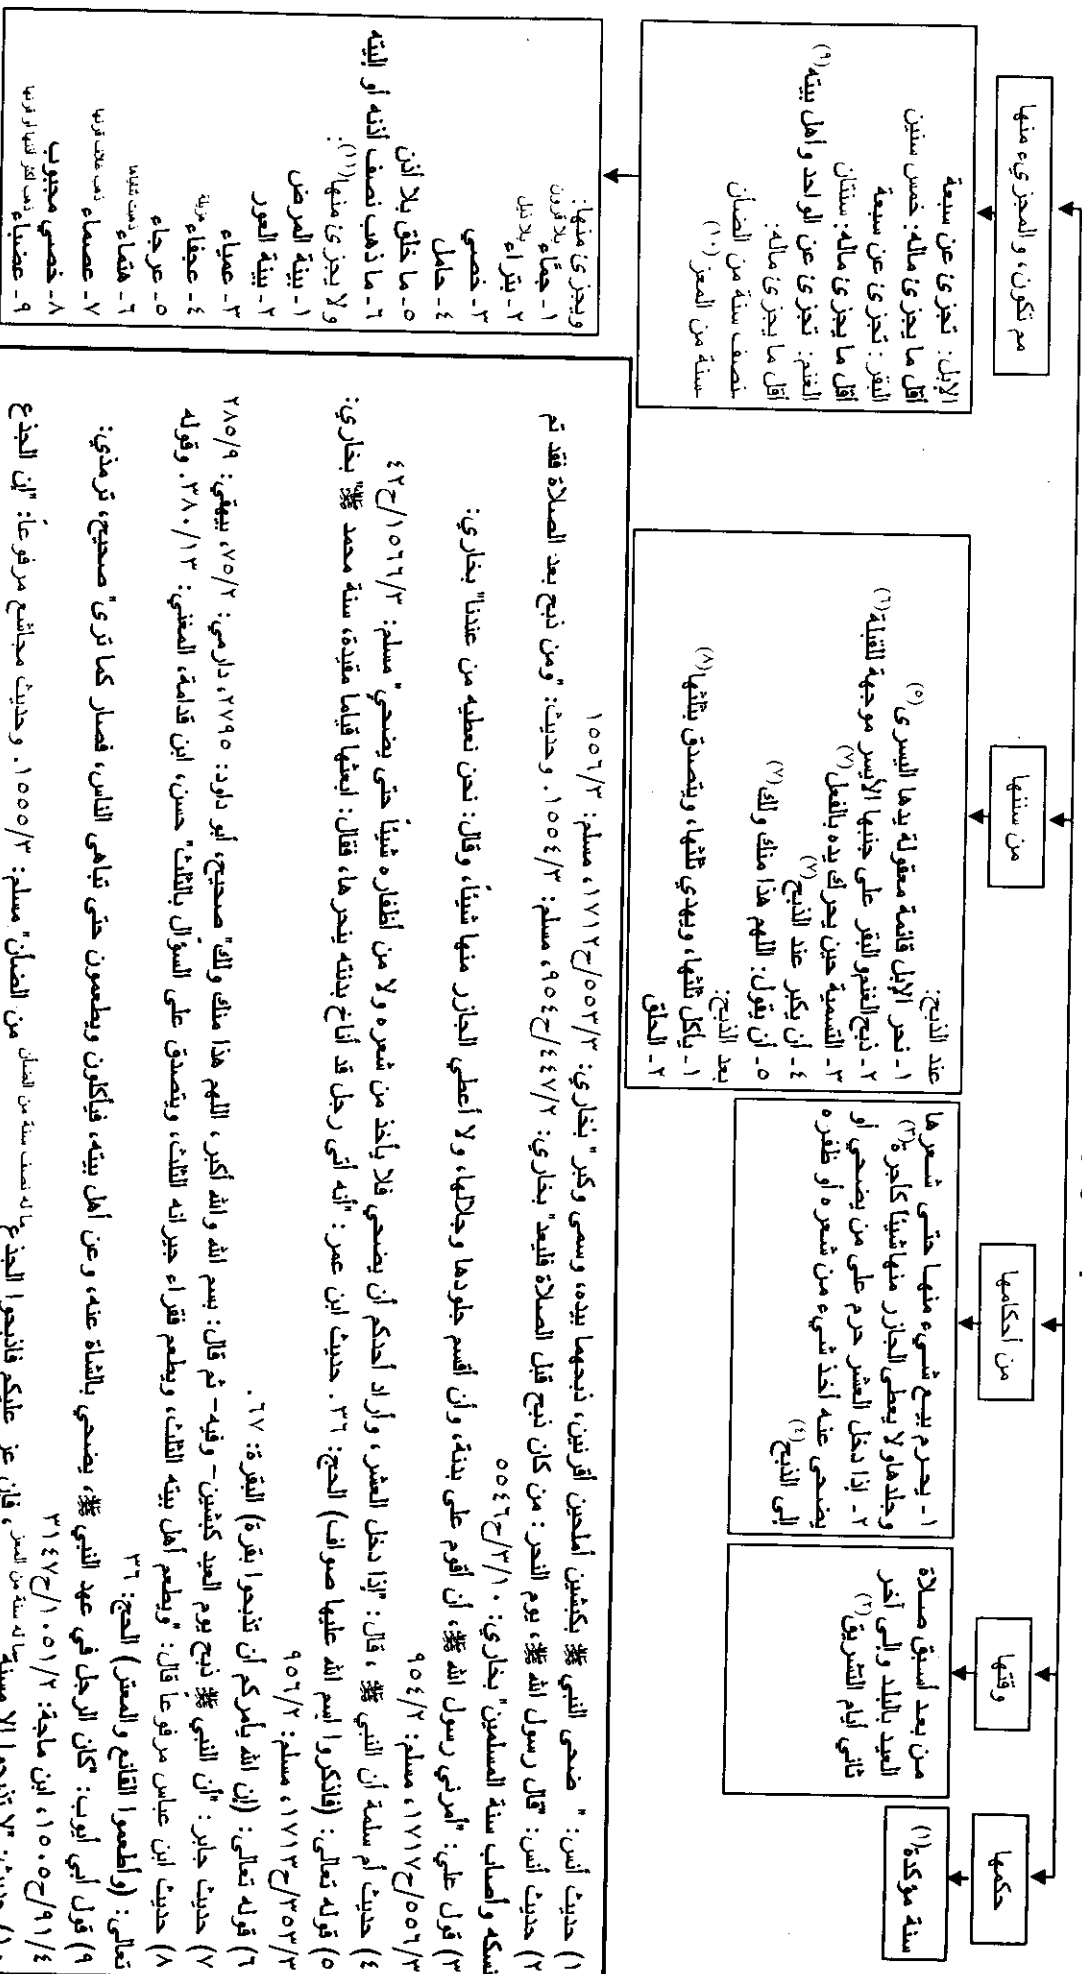 حكمها
سنة مؤكدة(١)
وقتها
من بعد أسبق صلاة
العيد بالبلد وإلى آخر
ثاني أيام التشريق(٢)
من أحكامها
١- يحرم بيع شيء منها حتى شعرها
وجلدها ولا يعطى الجازر منها شيئاً كأجرة(٣)
٢- إذا دخل العشر حرم على من يضحي أو
يضحى عنه أخذ شيء من شعره أو ظفره
إلى الذبح(٤)
من سننها
عند الذبح:
١- نحر الإبل قائمة معقولة يدها اليسرى(٥)
٢- ذبح الغنم والبقر على جنبها الأيسر موجهة للقبلة(٦)
٣- التسمية حين يحرك يده بالفعل(٧)
٤- أن يكبر عند الذبح(٧)
٥- أن يقول: اللهم هذا منك ولك(٧)
بعد الذبح:
١- يأكل ثلثها، ويهدي ثلثها، ويتصدق بثلثها(٨)
٢- الحلق
مم تكون، والمجزيء منها
الإبل: تجزئ عن سبعة
أقل ما يجزئ ماله: خمس سنين
البقر: تجزئ عن سبعة
أقل ما يجزئ ماله: سنتان
الغنم: تجزئ عن الواحد وأهل بيته(٩)
أقل ما يجزئ ماله:
-نصف سنة من الضأن
-سنة من المعز(١٠)
ويجزئ منها:
١- جمَّاء بلا قرون
٢- بتراء بلا ذيل
٣- خصي
٤- حامل
٥- ما خلق بلا أذن
٦- ما ذهب نصف أذنه أو اليته
ولا يجزئ منها(١١):
١- بينة المرض
٢- بينة العور
٣- عمياء
٤- عجفاء هزيلة
٥- عرجاء
٦- هتماء ذهبت ثناياها
٧- عصماء ذهب غلاف قرنها
٨- خصي مجبوب
٩- عضباء ذهب أكثر أذنها أو قرنها
١) حديث أنس: " ضحى النبي ﷺ بكبشين أملحين أقرنين، ذبحهما بيده، وسمى وكبر" بخاري: ٥٥٣/٣/ح١٧١٢، مسلم: ١٥٥٦/٣
٢) حديث أنس: "قال رسول الله ﷺ، يوم النحر: من كان ذبح قبل الصلاة فليعد" بخاري: ٤٤٧/٢/ح٩٥٤، مسلم: ١٥٥٤/٣. وحديث: "ومن ذبح بعد الصلاة فقد تم
نسكه وأصاب سنة المسلمين" بخاري: ٣/١٠/ح٥٥٤٦
٣) قول علي: "أمرني رسول الله ﷺ، أن أقوم على بدنة، وأن أقسم جلودها وجلالها، ولا أعطي الجازر منها شيئاً، وقال: نحن نعطيه من عندنا" بخاري:
٥٥٦/٣/ح١٧١٧، مسلم: ٩٥٤/٢
٤) حديث أم سلمة أن النبي ﷺ، قال: "إذا دخل العشر، وأراد أحدكم أن يضحي فلا يأخذ من شعره ولا من أظفاره شيئاً حتى يضحي" مسلم: ١٥٦٦/٣/ح٤٢
٥) قوله تعالى: (فاذكروا اسم الله عليها صواف) الحج: ٣٦. حديث ابن عمر: "أنه أتى رجل قد أناخ بدنته ينحرها، فقال: ابعثها قياما مقيدة، سنة محمد ﷺ" بخاري:
٣٥٣/٣/ح١٧١٣، مسلم: ٩٥٦/٢
٦) قوله تعالى: (إن الله يأمركم أن تذبحوا بقرة) البقرة: ٦٧.
٧) حديث جابر: "أن النبي ﷺ ذبح يوم العيد كبشين- وفيه- ثم قال: بسم الله والله أكبر، اللهم هذا منك ولك" صحيح، أبو داود: ٢٧٩٥، دارمي: ٧٥/٢، بيهقي: ٢٨٥/٩
٨) حديث ابن عباس مرفوعاً قال: "ويطعم أهل بيته الثلث، ويطعم فقراء جيرانه الثلث، ويتصدق على السؤال بالثلث" حسن، ابن قدامة، المغني: ٣٨٠/١٣. وقوله
تعالى: (وأطعموا القانع والمعتر) الحج: ٣٦
٩) قول أبي أيوب: "كان الرجل في عهد النبي ﷺ، يضحي بالشاة عنه، وعن أهل بيته، فيأكلون ويطعمون حتى تباهى الناس، فصار كما ترى" صحيح، ترمذي:
٩١/٤/ح١٥٠٥، ابن ماجة: ١٠٥١/٢/ح٣١٤٧
حديث: "لا تذبحوا إلا مسنة ماله سنة من المعز، فإن عز عليكم فاذبحوا الجذع ماله نصف سنة من الضأن من الضأن" مسلم: ١٥٥٥/٣. وحديث مجاشع مرفوعاً: "إن الجذع